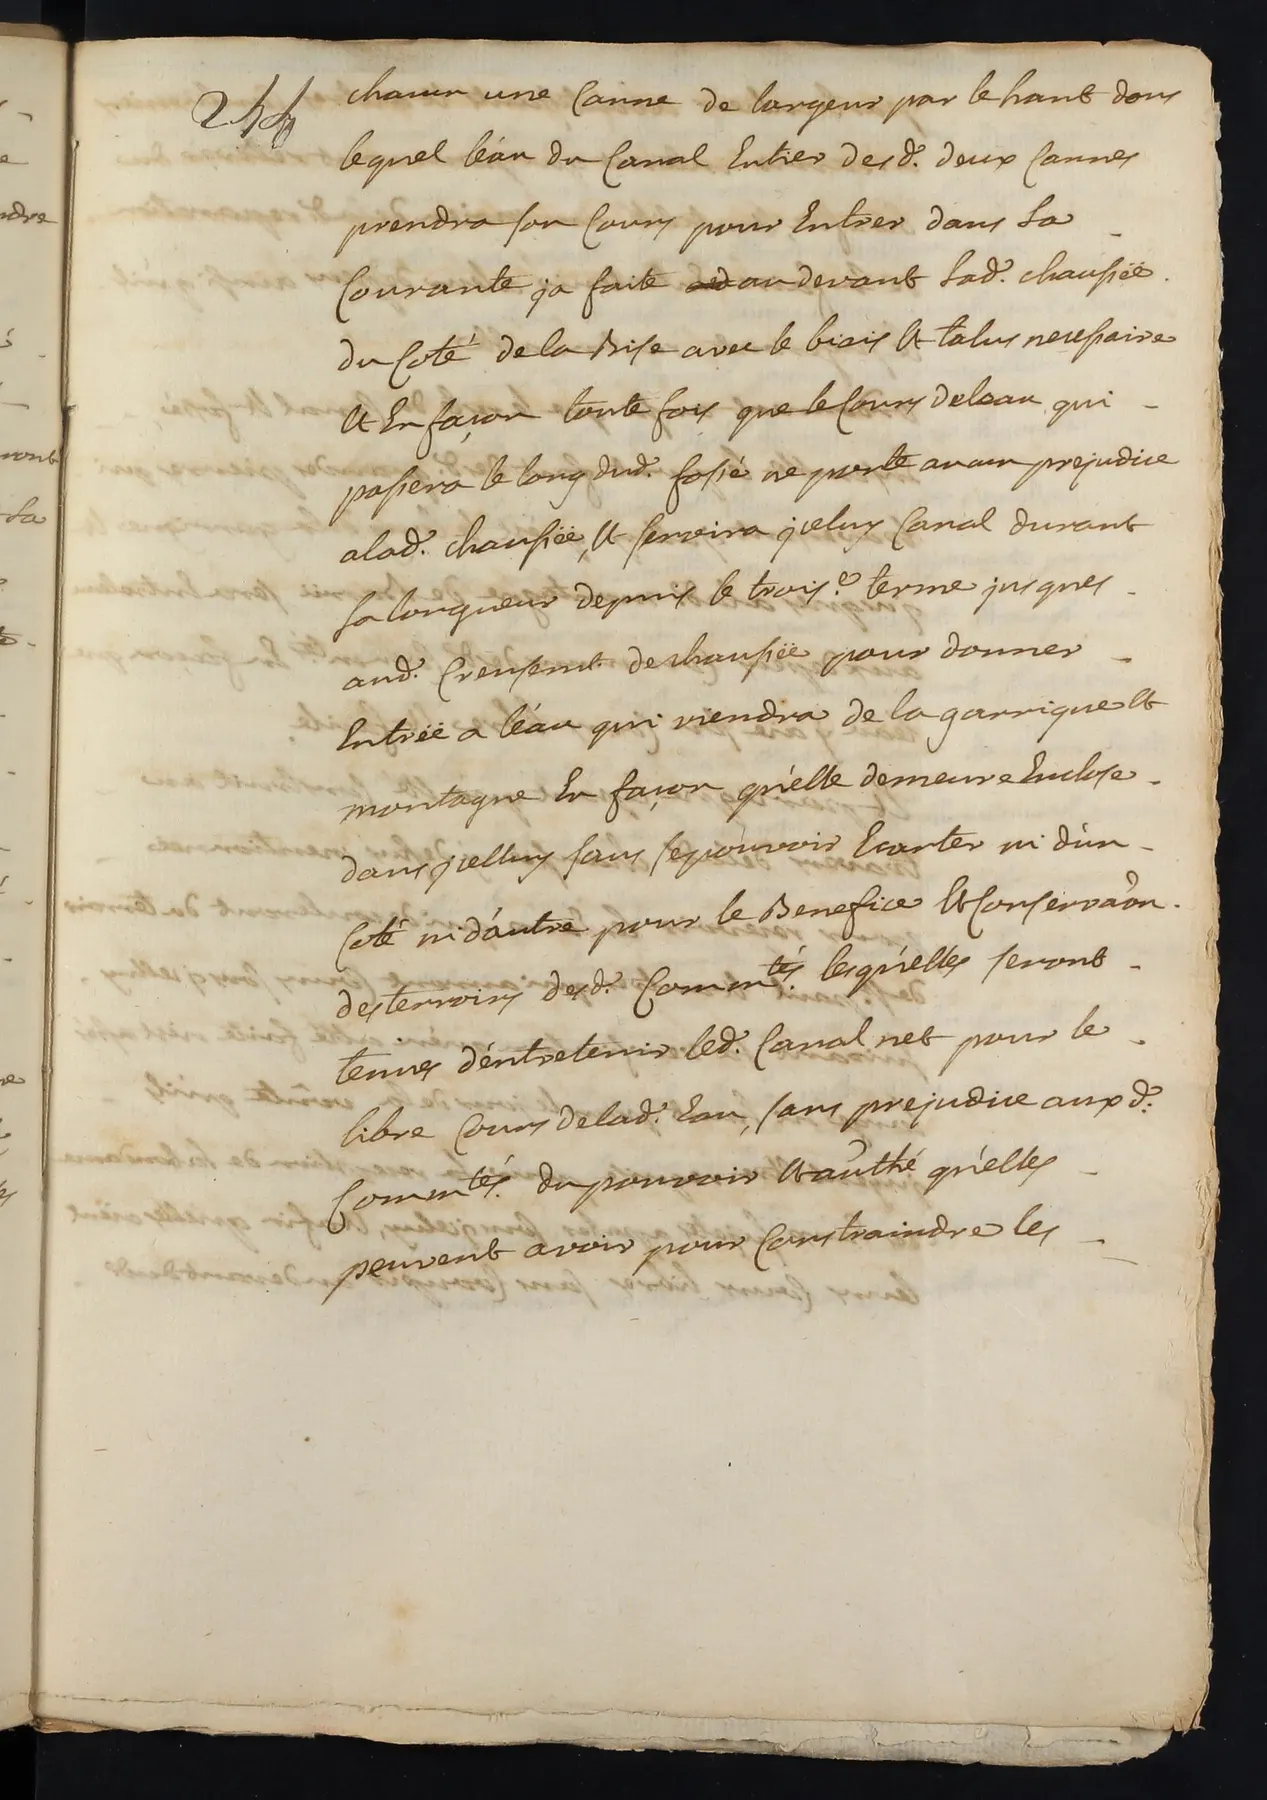 244
chacun une Canne de largeur par le haut dans
lequel léau du Canal Entier desd. deux Cannes
prendra son Cours pour Entrer dans la
Courante ja faite au devant lad. chaussëë
du Coté de la Bise avec le biais & talus necessaire
& En façon toute fois que le Cours deleau qui
passera le long dud. fossé ne porte aucun prejudice
alad. chaussëë, & servira jceluy Canal durant
sa longueur depuis le trois.e terme jusques
aud. Creusemt. de chaussëë pour donner
Entrëë a léau qui viendra de la garrigue &
montagne En façon qu'elle demeure Enclose
dans jcelluy sans se pouvoir Ecarter ni d'un
Coté ni d'autre pour le Benefice & Conservaon
des terroirs desd. Commtés. lesqu'elles seront
tenues d'éntretenir led. Canal net pour le
libre Cours delad. Eau, sans prejudice aux d.
Commtés. du pouvoir & authé qu'elles
peuvent avoir pour Constraindre les